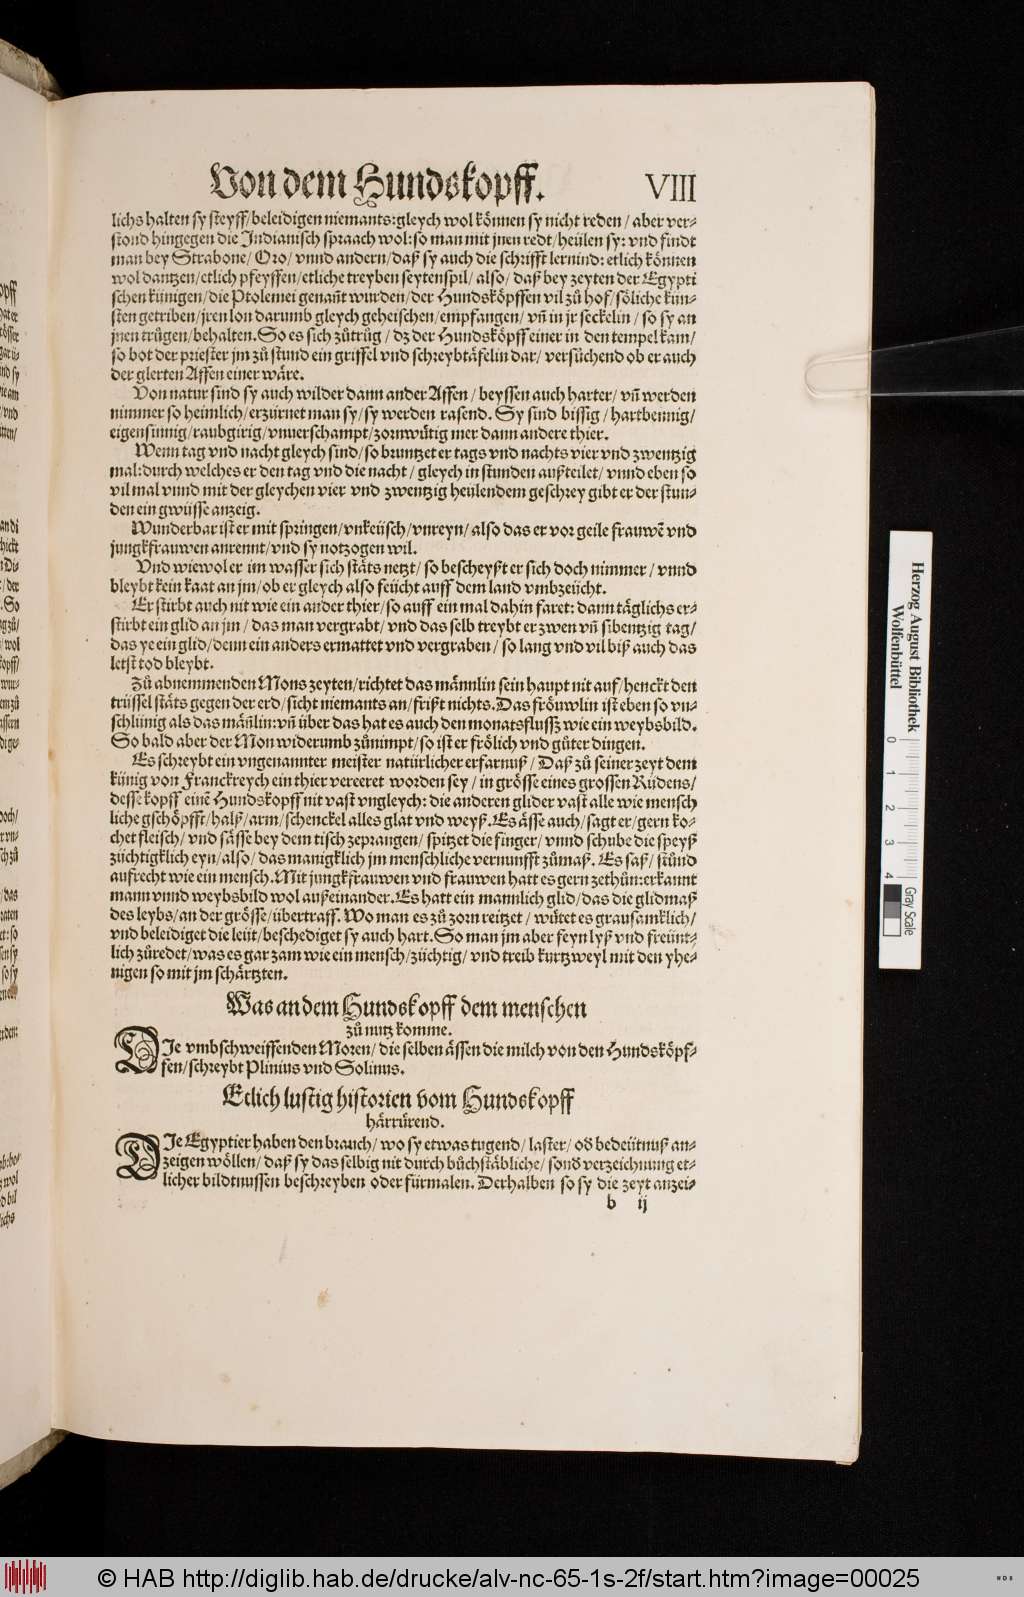 Von dem Hundskopff. VIII
lichs halten sy steyff/beleidigen niemants:gleych wol können sy nicht reden / aber ver-
stond hingegen die Indianisch spraach wol:so man mit jnen redt/heülen sy: vnd findt
man bey Strabone/ Oro/ vnnd andern/daß sy auch die schrifft lernind: etlich können
wol dantzen/etlich pfeyffen/etliche treyben seytenspil/ also/ daß bey zeyten der Egypti
schen künigen/die Ptolemei genañt wurden/der Hundsköpffen vil zů hof/söliche kün-
sten getriben/jren lon darumb gleych geheischen/empfangen/ vñ in jr seckelin / so sy an
jnen trůgen/behalten. So es sich zůtrůg / dz der Hundsköpff einer in den tempel kam/
so bot der priester jm zů stund ein griffel vnd schreybtäfelin dar/ versůchend ob er auch
der glerten Affen einer wäre.
Von natur sind sy auch wilder dann ander Affen / beyssen auch harter/ vñ werden
nimmer so heimlich/erzürnet man sy/sy werden rasend. Sy sind bissig / hartbennig/
eigensinnig/raubgirig/vnuerschampt/zornwütig mer dann andere thier.
Wenn tag vnd nacht gleych sind/so bruntzet er tags vnd nachts vier vnd zwentzig
mal:durch welches er den tag vnd die nacht / gleych in stunden außteilet/ vnnd eben so
vil mal vnnd mit der gleychen vier vnd zwentzig heülendem geschrey gibt er der stun-
den ein gwüsse anzeig.
Wunderbar ist er mit springen/vnkeüsch/vnreyn/also das er vor geile frauwẽ vnd
jungkfrauwen anrennt/vnd sy notzogen wil.
Vnd wiewol er im wasser sich stäts netzt/ so bescheyßt er sich doch nimmer / vnnd
bleybt kein kaat an jm/ob er gleych also feücht auff dem land vmbzeücht.
Er stirbt auch nit wie ein ander thier/so auff ein mal dahin faret: dann täglichs er-
stirbt ein glid an jm / das man vergrabt/ vnd das selb treybt er zwen vñ sibentzig tag/
das ye ein glid/denn ein anders ermattet vnd vergraben / so lang vnd vil biß auch das
letst tod bleybt.
Zů abnemmenden Mons zeyten/richtet das männlin sein haupt nit auf/henckt den
trüssel stäts gegen der erd/sicht niemants an/frißt nichts. Das fröuwlin ist eben so vn-
schlünig als das mäñlin:vñ über das hat es auch den monatsflussz wie ein weybsbild.
So bald aber der Mon widerumb zůnimpt/so ist er frölich vnd gůter dingen.
Es schreybt ein vngenannter meister natürlicher erfarnuß/ Daß zů seiner zeyt dem
künig von Franckreych ein thier vereeret worden sey / in grösse eines grossen Rüdens/
desse kopff einẽ Hundskopff nit vast vngleych: die anderen glider vast alle wie mensch
liche gschöpfft/halß/arm/schenckel alles glat vnd weyß. Es ässe auch/sagt er/gern ko-
chet fleisch/ vnd sässe bey dem tisch zeprangen/ spitzet die finger/ vnnd schube die speyß
züchtigklich eyn/also/das manigklich jm menschliche vernunfft zůmaß. Es saß/ stůnd
aufrecht wie ein mensch. Mit jungkfrauwen vnd frauwen hatt es gern zethůn:erkannt
mann vnnd weybsbild wol außeinander. Es hatt ein mannlich glid/das die glidmaß
des leybs/an der grösse/übertraff. Wo man es zů zorn reitzet/ wůtet es grausamklich/
vnd beleidiget die leüt/beschediget sy auch hart. So man jm aber feyn lyß vnd freünt-
lich zůredet/was es gar zam wie ein mensch/züchtig/ vnd treib kurtzweyl mit den yhe-
nigen so mit jm schärtzten.
Was an dem Hundskopff dem menschen
zů nutz komme.
DIe vmbschweiffenden Moren/die selben ässen die milch von den Hundsköpf-
fen/schreybt Plinius vnd Solinus.
Etlich lustig historien vom Hundskopff
härrürend.
DIe Egyptier haben den brauch/ wo sy etwas tugend/ laster/ oď bedeütnuß an-
zeigen wöllen/ daß sy das selbig nit durch bůchstäbliche/ sonď verzeichnung et-
licher bildtnussen beschreyben oder fürmalen. Derhalben so sy die zeyt anzei-
b ij
Herzog August Bibliothek
Wolfenbüttel
0 1 2 3 4
Gray Scale
© HAB http://diglib.hab.de/drucke/alv-nc-65-1s-2f/start.htm?image=00025